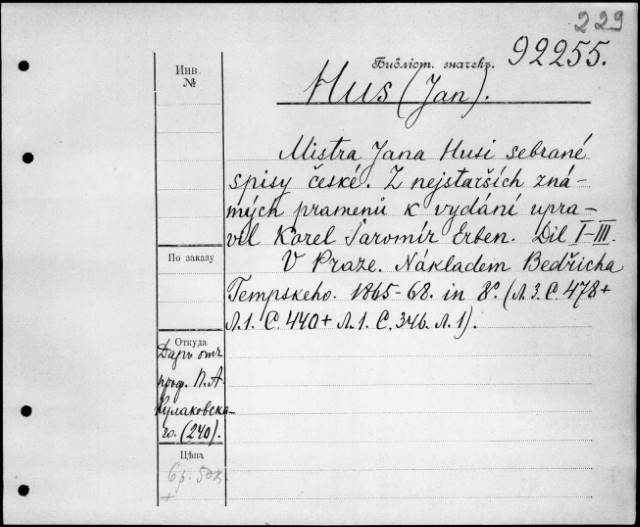 229
Библіот. значекр. 92255.
Инв.
№
Hus (Jan).
Mistra Jana Husi sebrané
spisy české. Z nejstarších zná-
mých pramenů k vydání upra-
vil Karel Jaromír Erben. Díl I-III.
V Praze. Nákladem Bedřicha
Tempskeho. 1865-68. in 8º. (Л.3.С.478+
Л.1.С.440+Л.1.С.346.Л.1).
По заказу
Откуда
Даръ отъ
проф. П.А.
Кулаковска-
го. (240).
Цѣна
6р. 50к